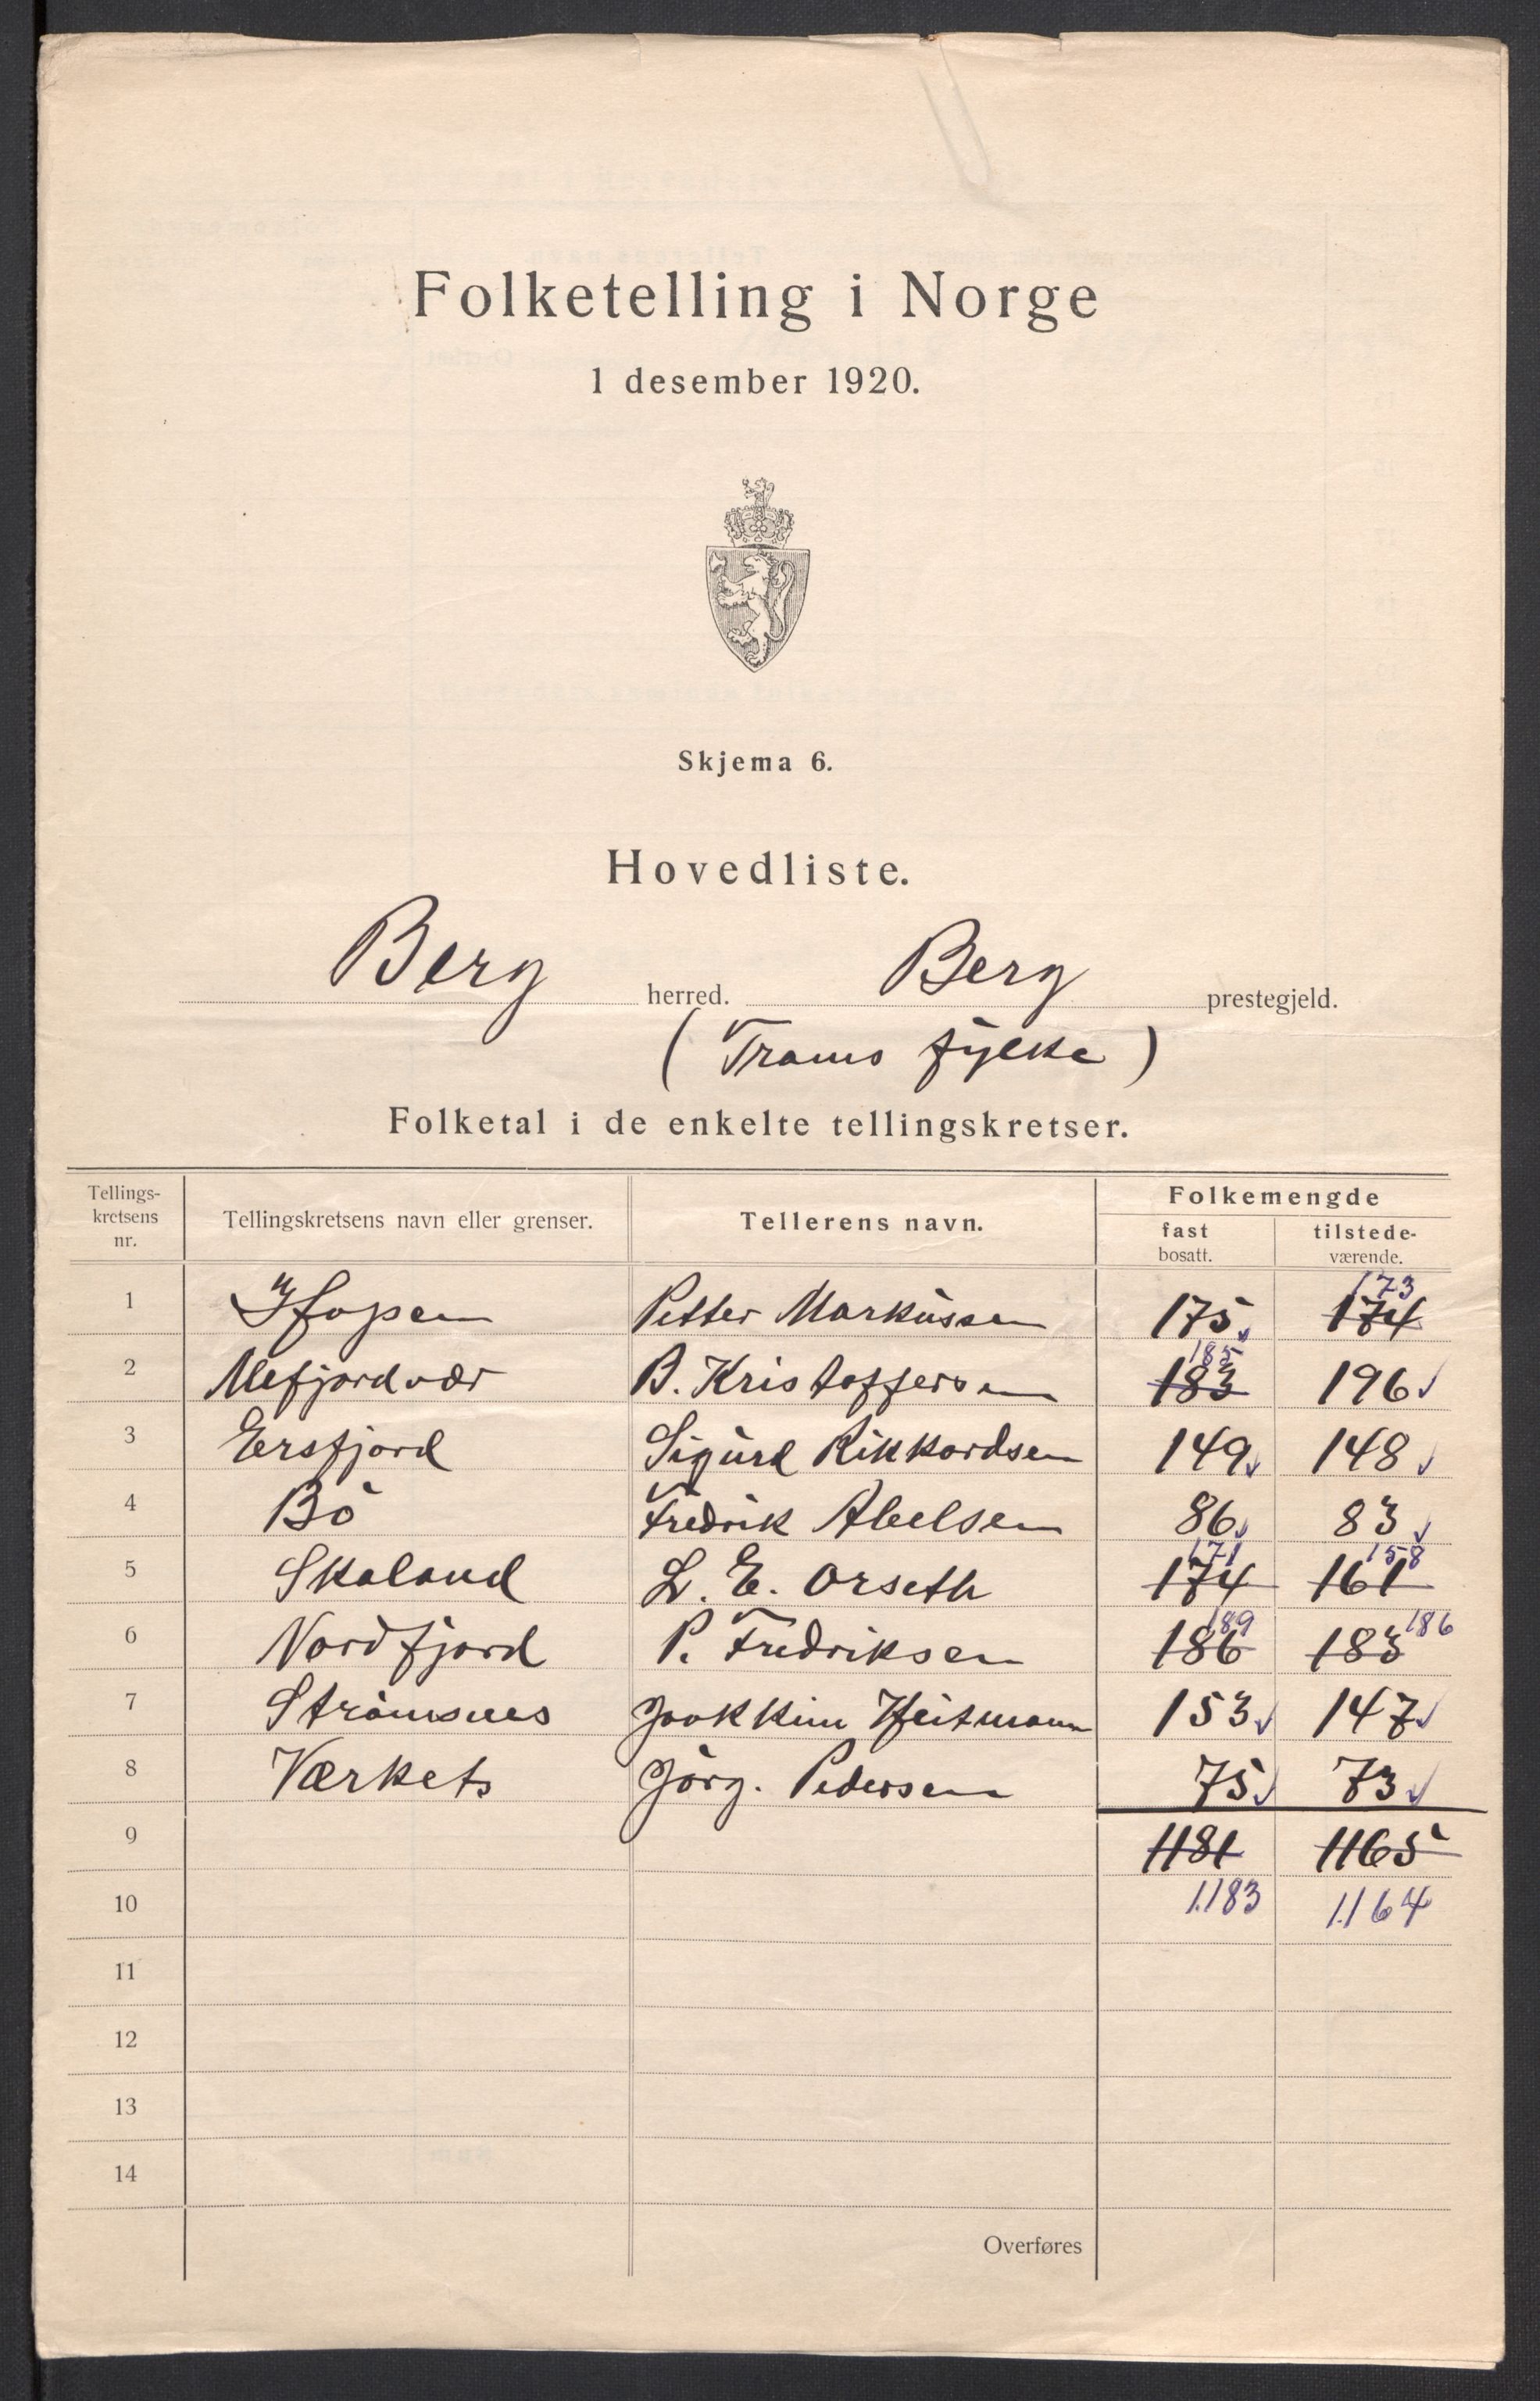 Folketelling i Norge
1 desember 1920.
Skjema 6.
Hovedliste.
Berg herred. Berg prestegjeld.
(Troms fylke)
Folketal i de enkelte tellingskretser.
Tellings-kretsens nr. Tellingskretsens navn eller grenser. Tellerens navn. Folkemengde fast bosatt. tilstede-værende.
1 Hopen Petter Markussen 175 174 173
2 Mefjordvær B. Kristoffersen 183 185 196
3 Ersfjord Sigurd Rikkardsen 149 148
4 Bö Fredrik Abelsen 86 83
5 Skaland L. E. Orseth 174 171 161 158
6 Nordfjord P. Fredriksen 186 189 183 186
7 Strömsnes Joakkim Heitmann 153 147
8 Værkets Jörg. Pedersen 75 73
9 1181 1165
10 1.183 1.164
11
12
13
14
Overføres